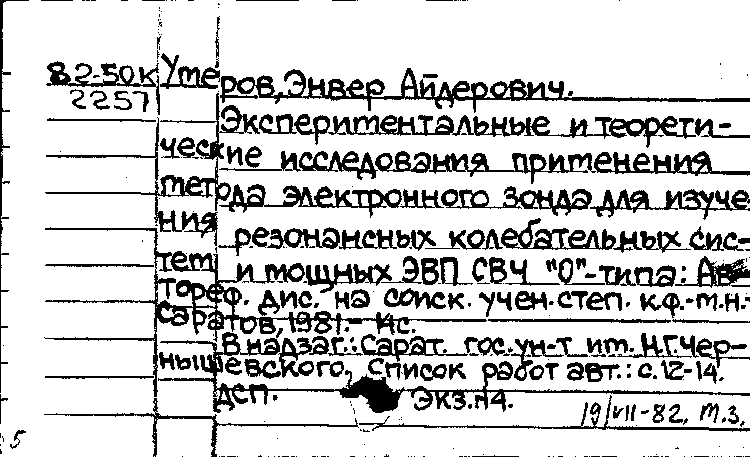 82-50к
2257
Умеров, Энвер Айдерович.
Экспериментальные и теорети-
ческие исследования применения
метода электронного зонда для изуче
ния резонансных колебательных сис-
тем и мощных ЭВП СВЧ "О"-типа: Ав-
тореф. дис. на соиск. учен. степ. к.ф.-м.н.-
Саратов, 1981.- 14с.
В надзаг.: Сарат. гос. ун-т им. Н.Г. Чер-
нышевского. Список работ авт.: с.12-14.
ДСП. ЭКЗ.№4.
19/VII-82. т.3,
5